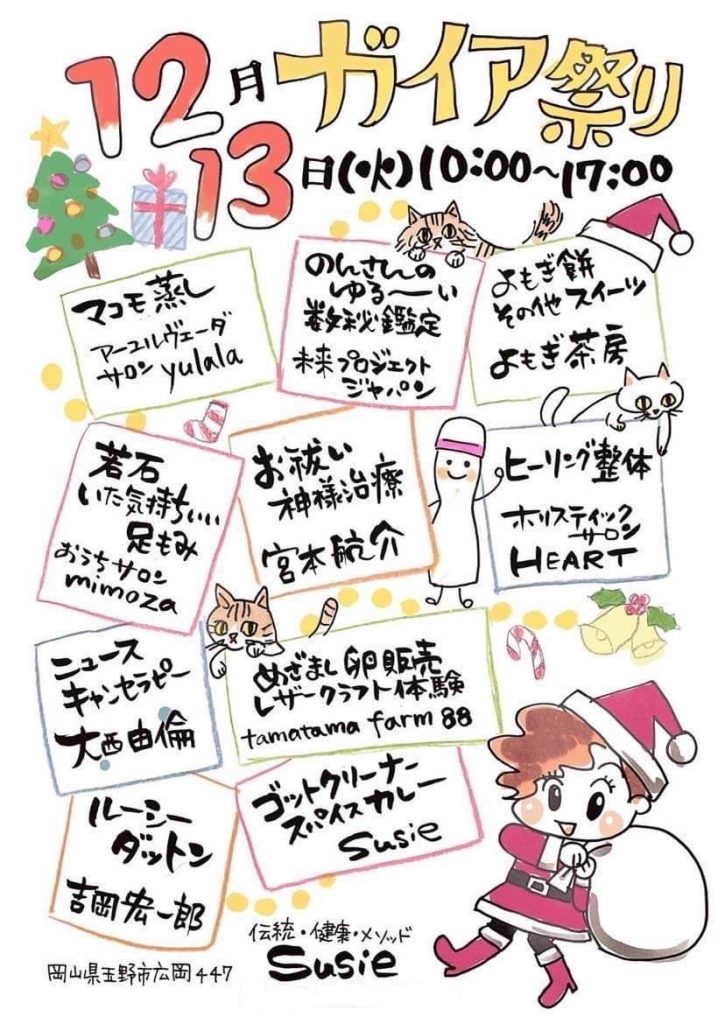 12月 ガイア祭り
13日(火)10:00〜17:00
マコモ蒸し
アーユルヴェーダ
サロン yulala
のんさんの
ゆる〜〜い
数秘鑑定
未来プロジェクト
ジャパン
よもぎ餅
その他 スイーツ
よもぎ茶房
若石
いた気持ちいい
足もみ
おうちサロン
mimoza
お祓い
神様治療
宮本航介
ヒーリング整体
ホリスティック
サロン
HEART
ニュース
キャンセラピー
大西由倫
めざまし卵販売
レザークラフト体験
tamatama farm 88
ルーシー
ダットン
吉岡宏一郎
ゴットクリーナー
スパイスカレー
Susie
伝統・健康・メソッド
Susie
岡山県玉野市広岡447